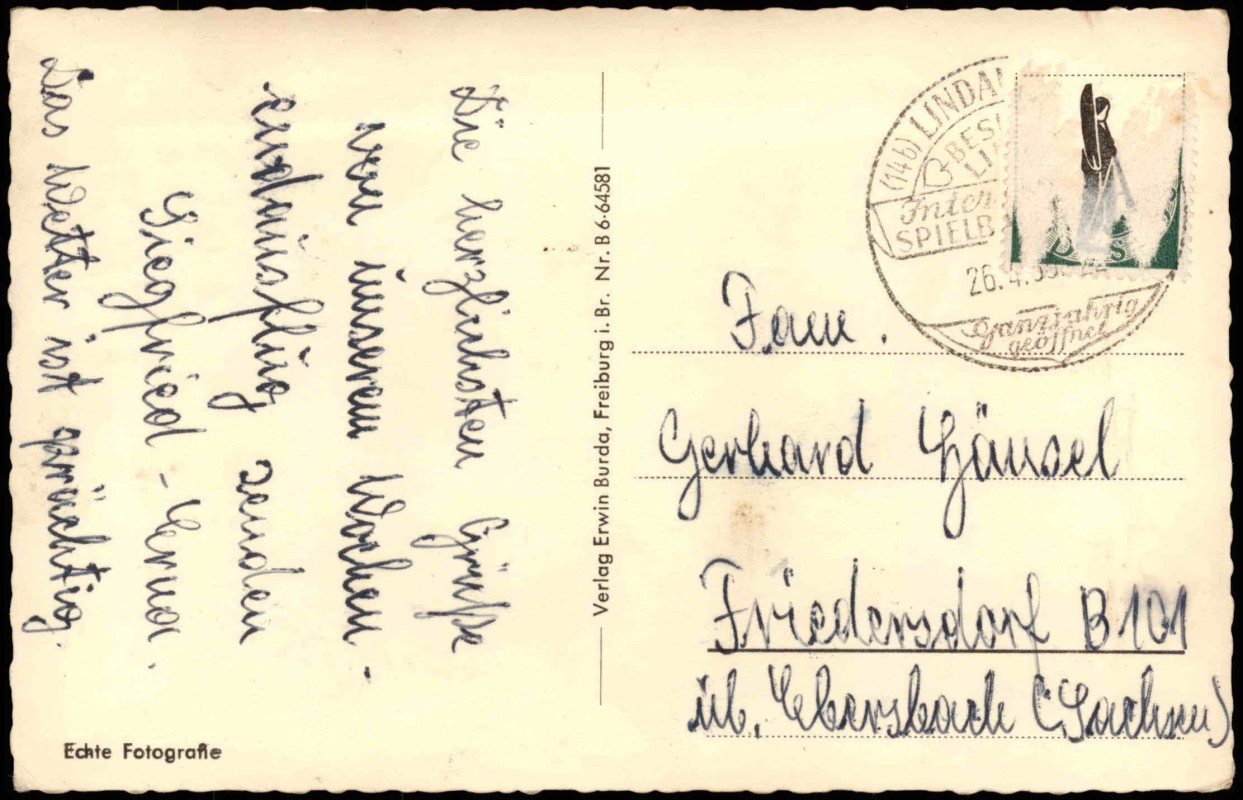 Die herzlichsten Grüße
von unserem Wochen-
endausflug senden
Siegfried - Erna.
Das Wetter ist prächtig.
Echte Fotografie
Verlag Erwin Burda, Freiburg i. Br. Nr. B 6-64581
(14b) LINDAU
BESU
LIN
Inter
SPIELB
26.4.55
Ganzjährig
geöffnet
Fam.
Gerhard Hänsel
Friedersdorf B 101
üb. Ebersbach (Sachsen)